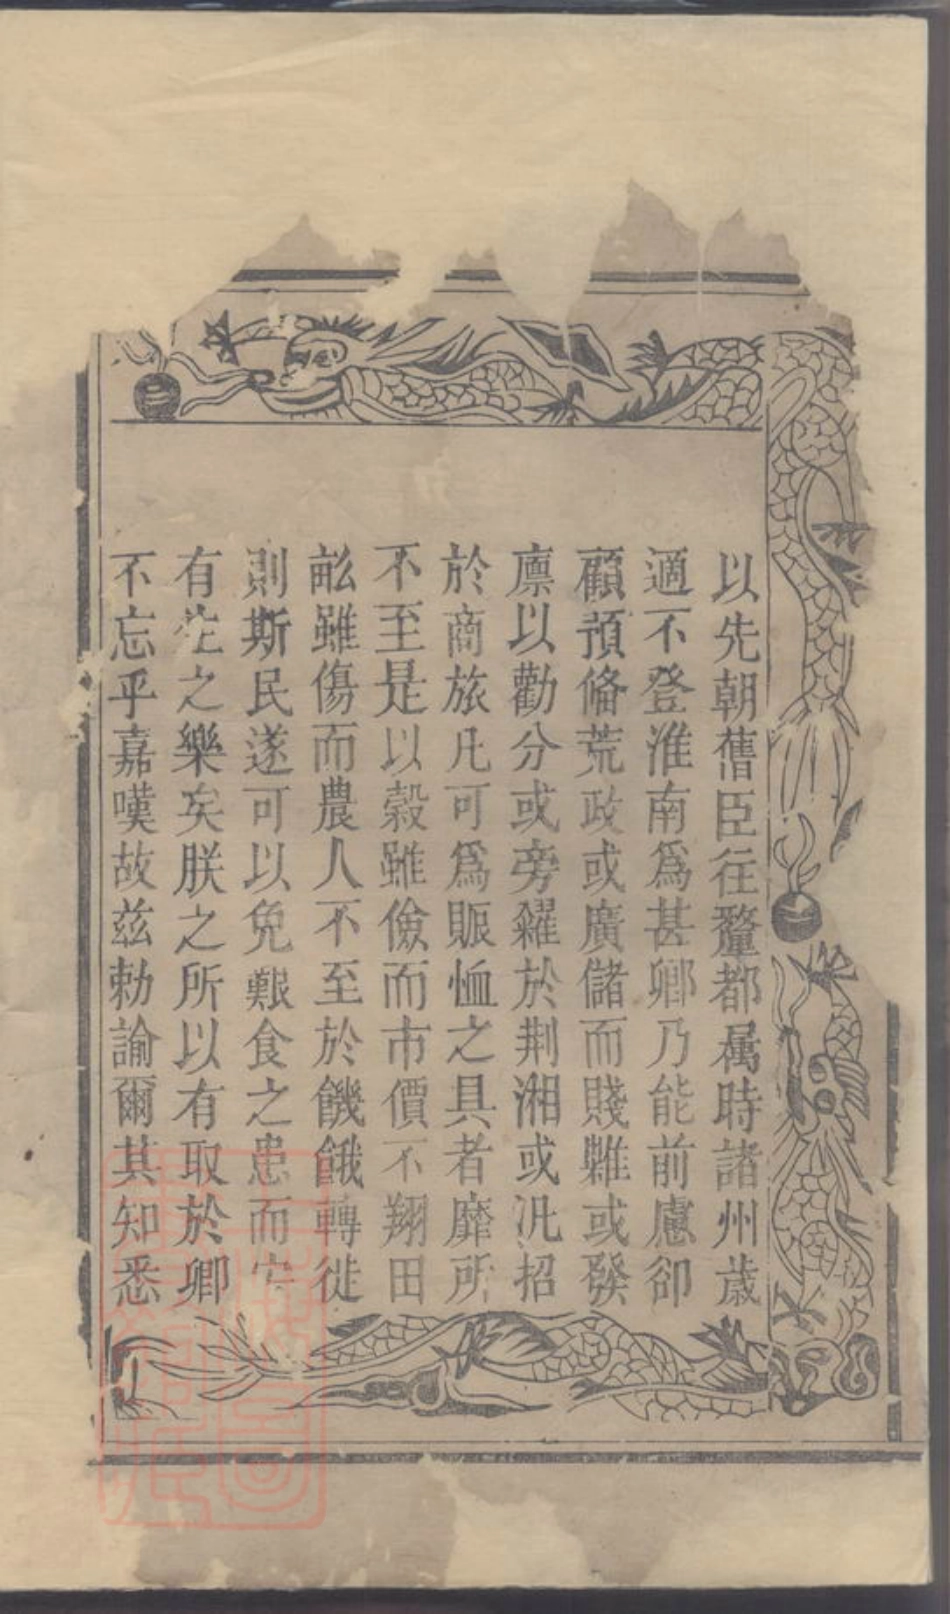 以先朝舊臣往釐都属時諸州歳
適不登淮南爲甚卿乃能前慮卻
顧預俻荒政或廣儲而賤難或發
廪以勸分或旁糴於荆湘或汎招
於商旅凡可爲賑恤之具者靡所
不至是以榖雖儉而市價不翔田
畝雖傷而農人不至於饑餓轉徙
則斯民遂可以免艱食之患而安
有生之樂矣朕之所以有取於卿
不忘乎嘉嘆故兹勑諭爾其知悉